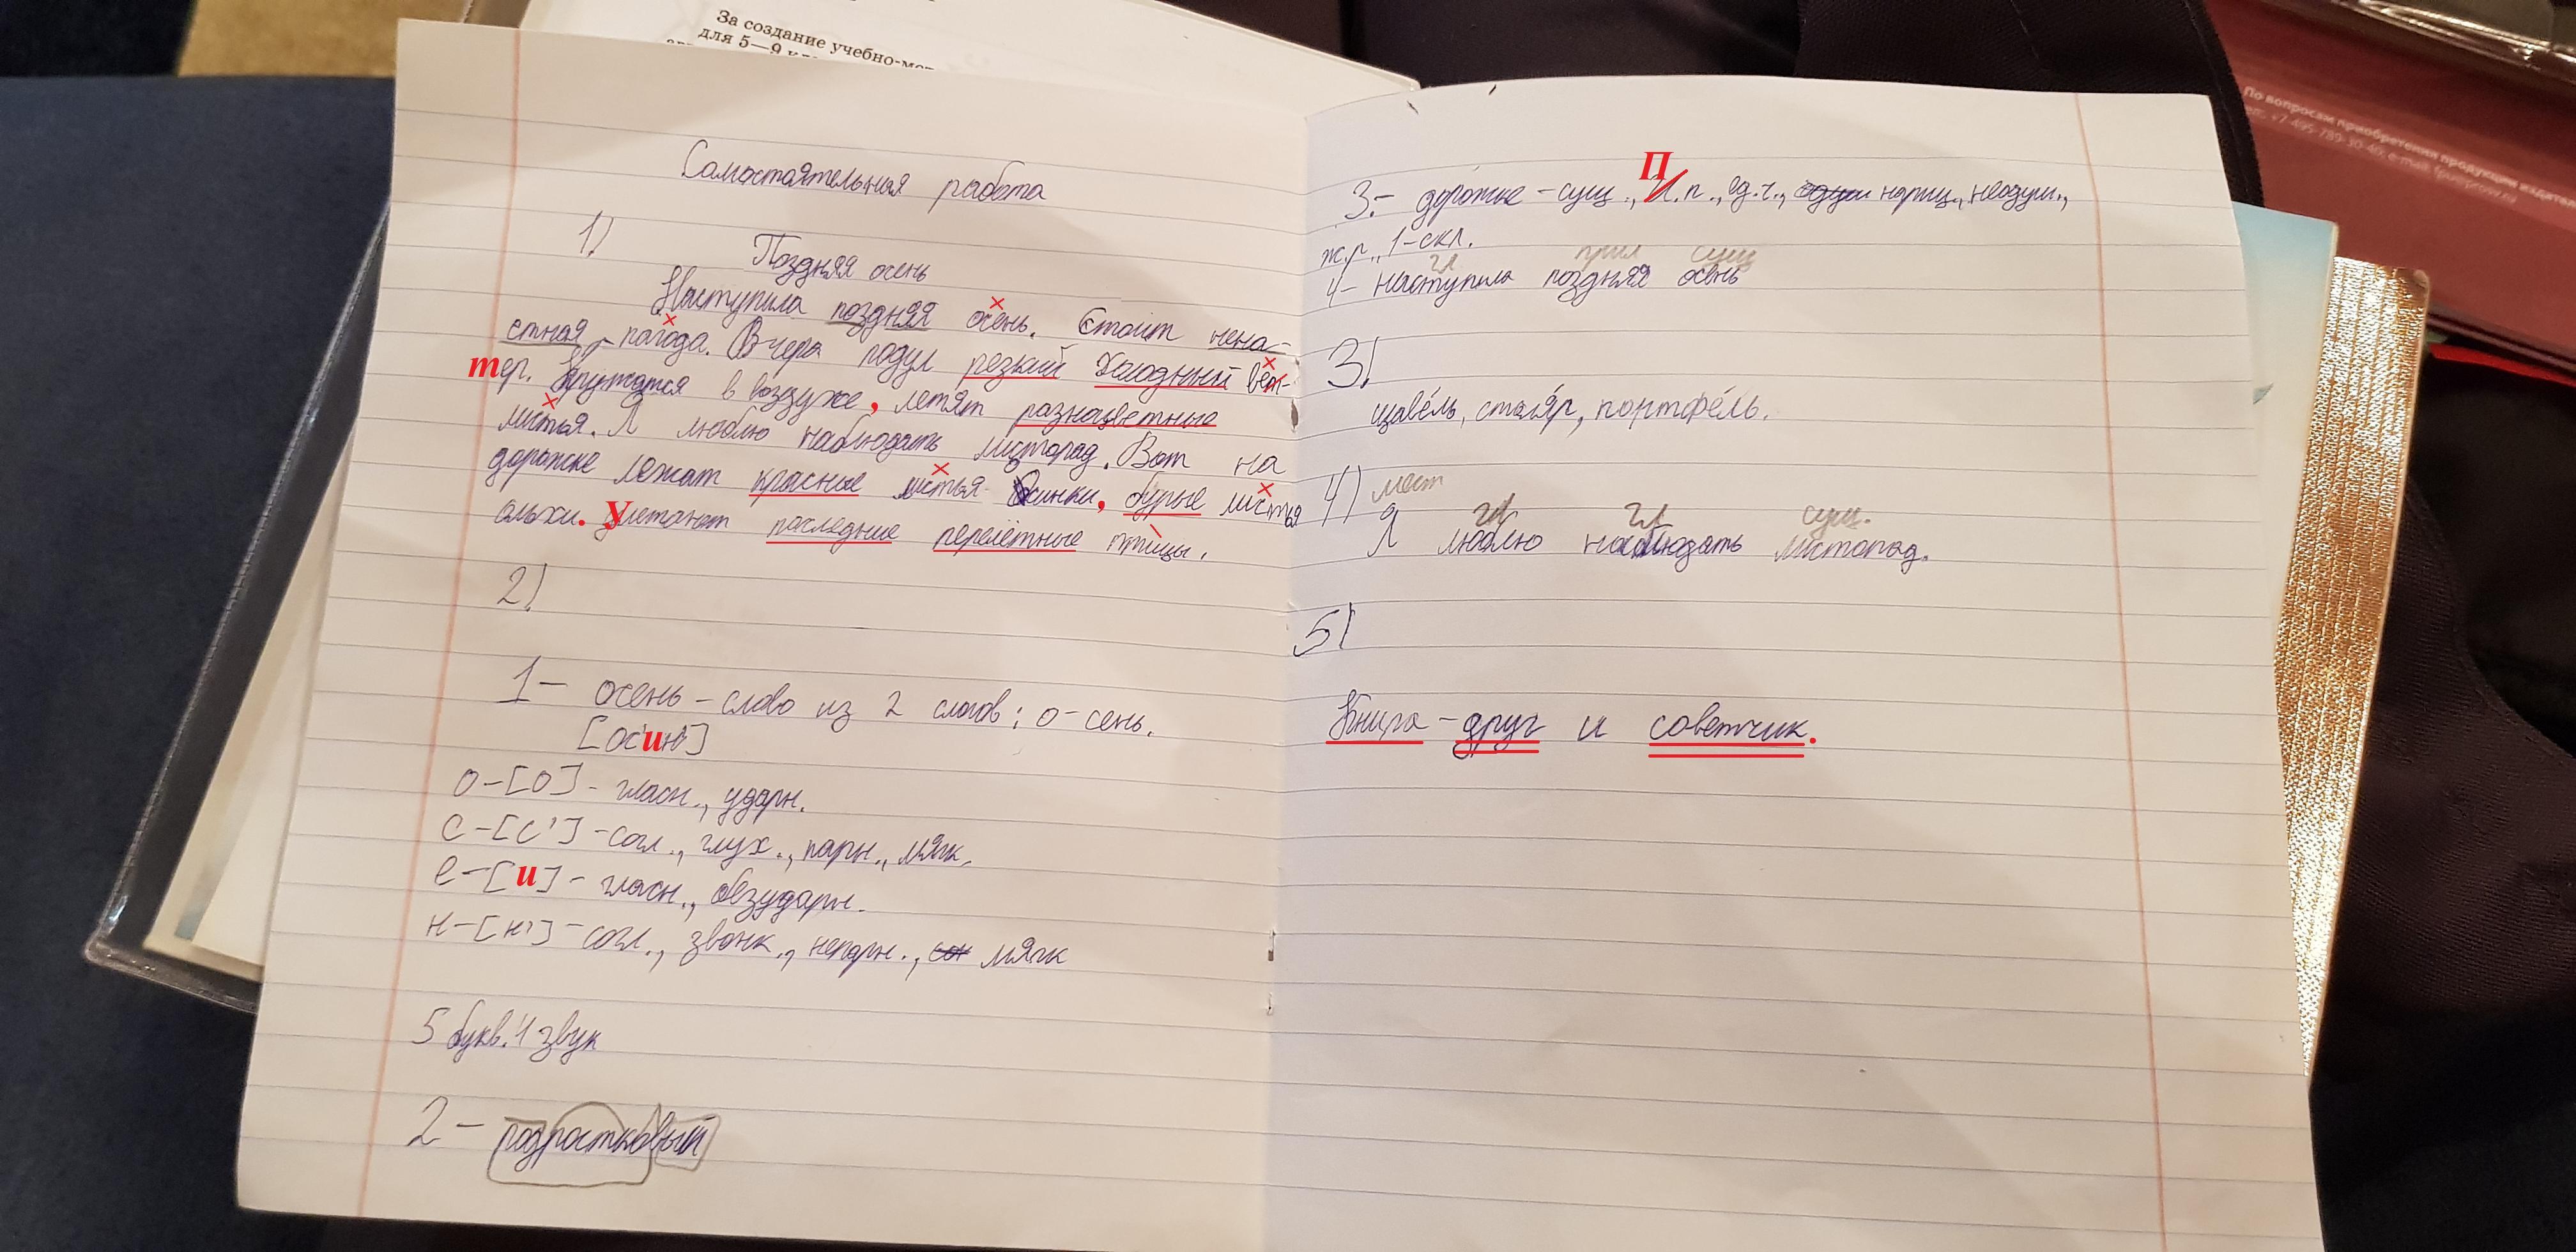 За создание учебно-мет
для 5—9 кл
По вопросам приобретения продукции издател
тел. +7-495-789-30-40; e-mail:
Самостоятельная работа
1)
Поздняя осень
Наступила поздняя осень. Стоит нена-
стная погода. Вчера подул резкий холодный вет-
тер. Кружатся в воздухе, летят разноцветные
листья. Я люблю наблюдать листопад. Вот на
дорожке лежат красные листья осинки, бурые листья
ольхи. Улетают последние перелётные птицы.
2)
1- осень - слово из 2 слогов: о-сень.
[ос'ин']
о-[о]- гласн., ударн.
с-[с']-согл., глух., парн., мягк.
е-[и]- гласн., безударн.
н-[н']-согл., звонк., непарн., мягк
5 букв. 4 звук
2- подростковый
3.- дорожке - сущ., П.п., ед.ч., нариц., неодуш.,
ж.р., 1-скл.
гл прил сущ
4- наступила поздняя осень
3)
щаве́ль, столя́р, портфе́ль.
4) мест гл гл сущ.
Я люблю наблюдать листопад.
5)
Книга - друг и советчик.